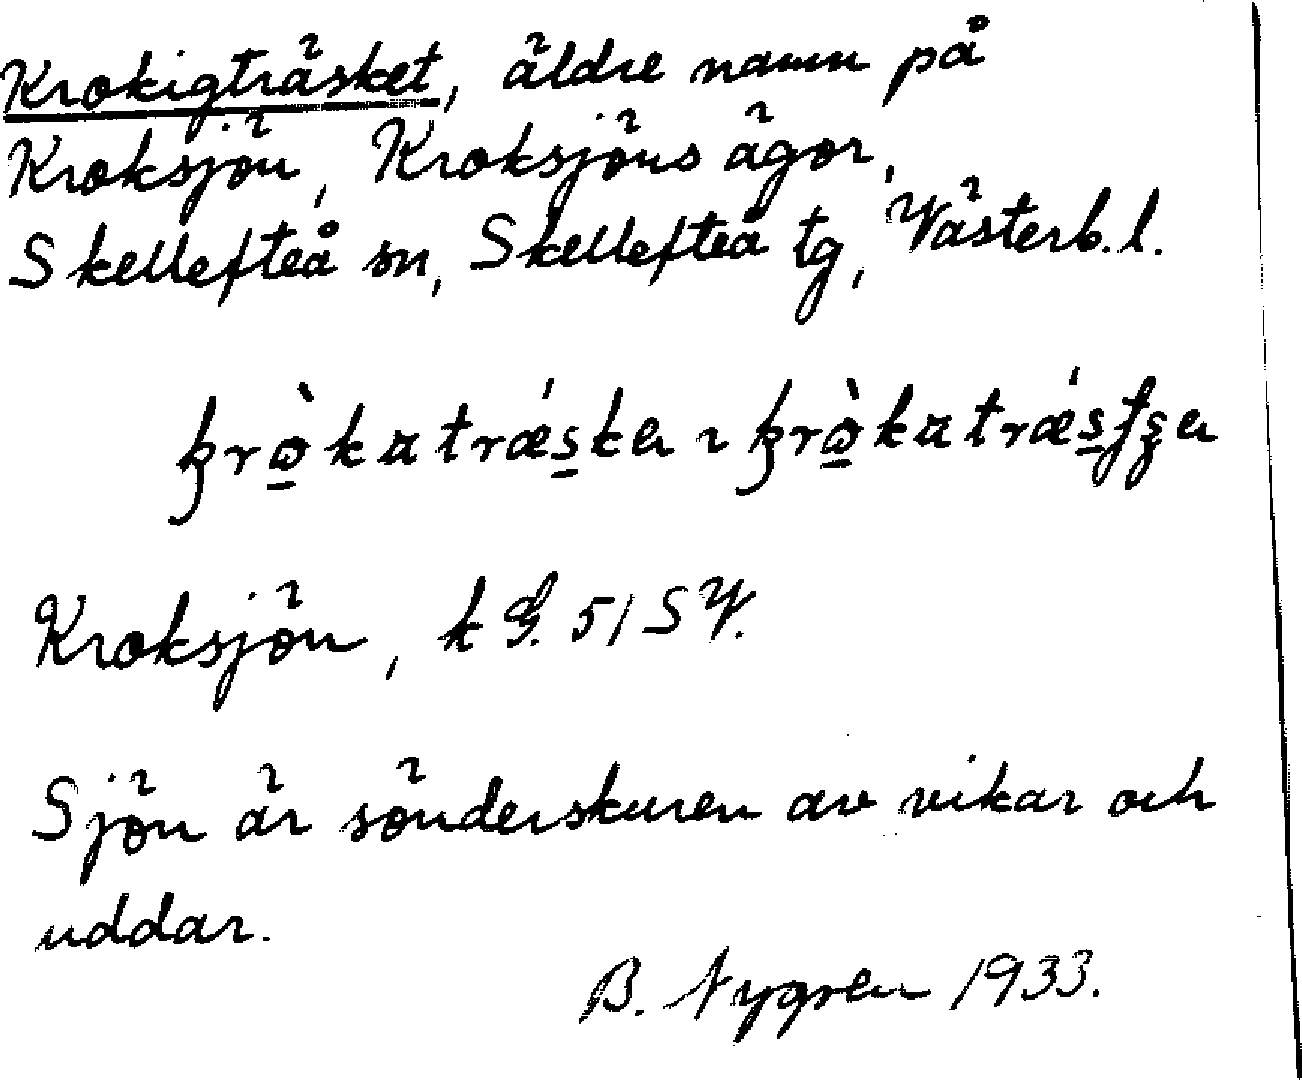 Krokigträsket, äldre namn på
Kroksjön, Kroksjöns ägor,
Skellefteå sn, Skellefteå tg, Västerb. l.
Kroksjön, k G. 51 SV.
Sjön är sönderskuren av vikar och
uddar.
B. Nygren 1933.